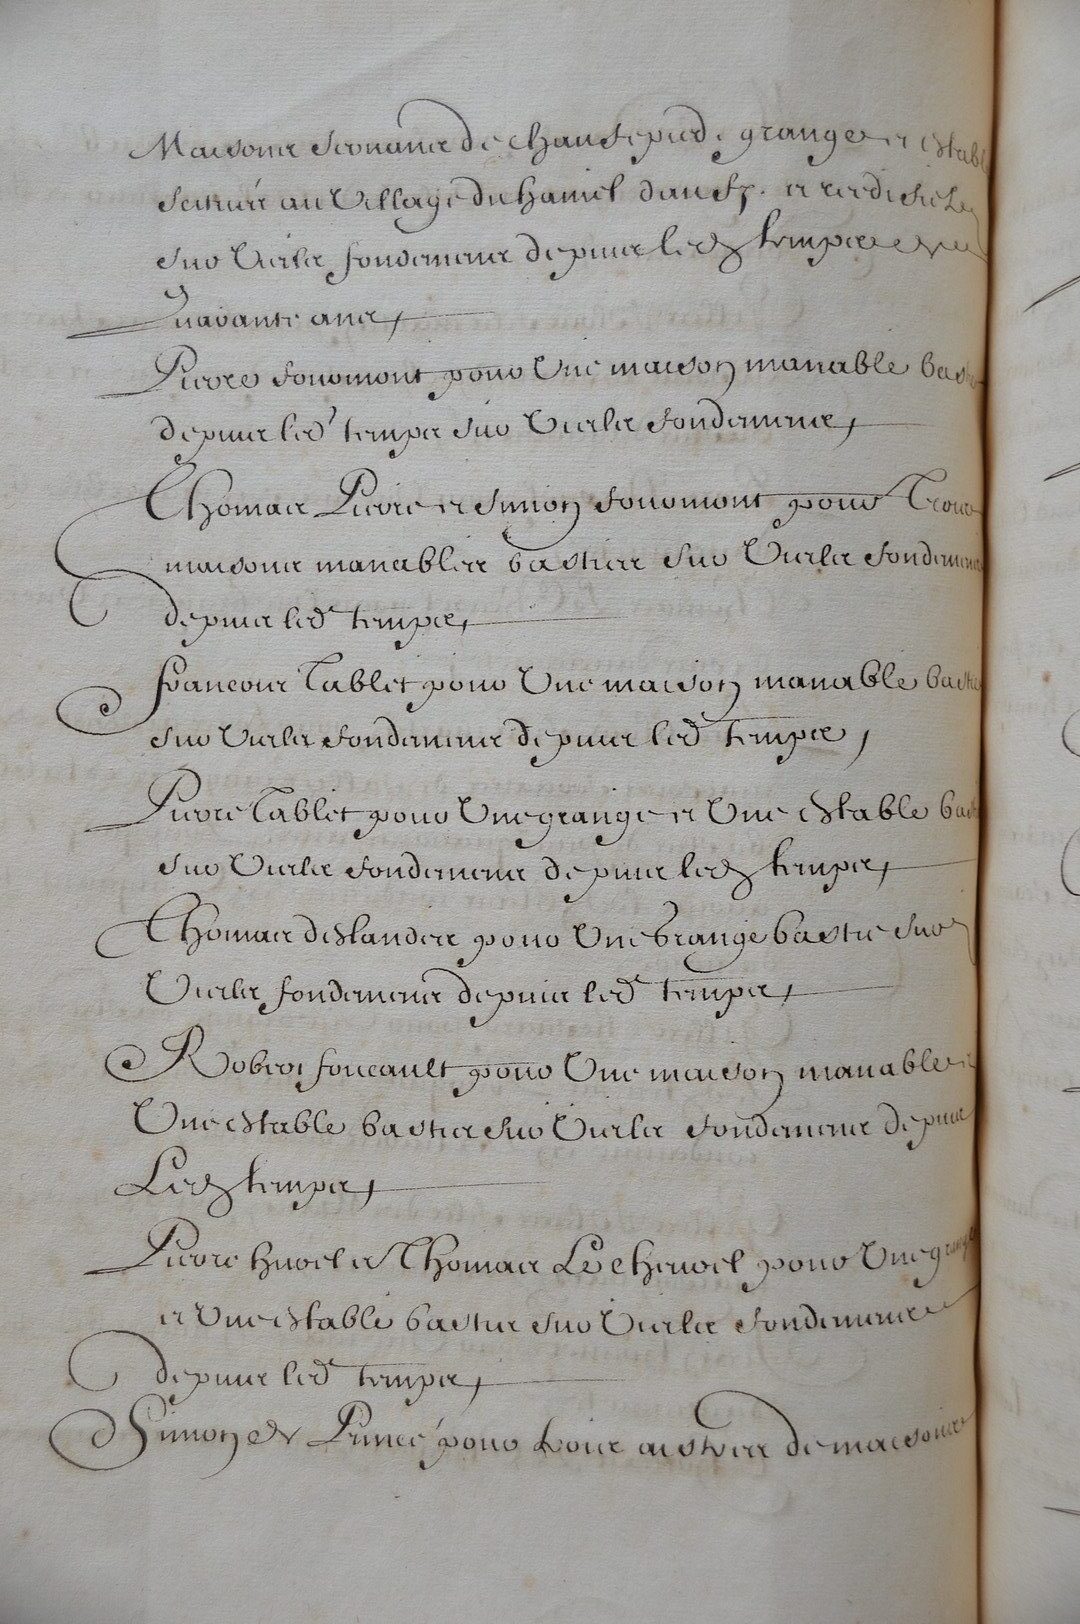 Maisons servans de chaufepied, grange et establ
scitués au Village du hamel dans f. et reediffié
sur Vieils fondemens depuis led temps
Quarante ans,
Pierre fouomont pour Une maison manable bast
depuis led temps sur Vieils fondemens,
Thomas Pierre et Simon fouomont pour Trois
maisons manables basties sur Vieils fondemens
depuis led temps,
francois Tablet pour Une maison manable bastie
sur Vieils fondemens depuis led temps,
Pierre Tablet pour Une grange et Une estable bast
sur Vieils fondemens depuis led temps,
Thomas deslandes pour Une Grange bastie sur
Vieils fondemens depuis led temps,
Robert foucault pour Une maison manable et
Une estable basties sur Vieils fondemens depuis
Led temps,
Pierre huoel et Thomas Lechevoel pour Une grange
et Une estable basties sur Vieils fondemens
depuis led temps,
Simon pour trois aistres de maisons